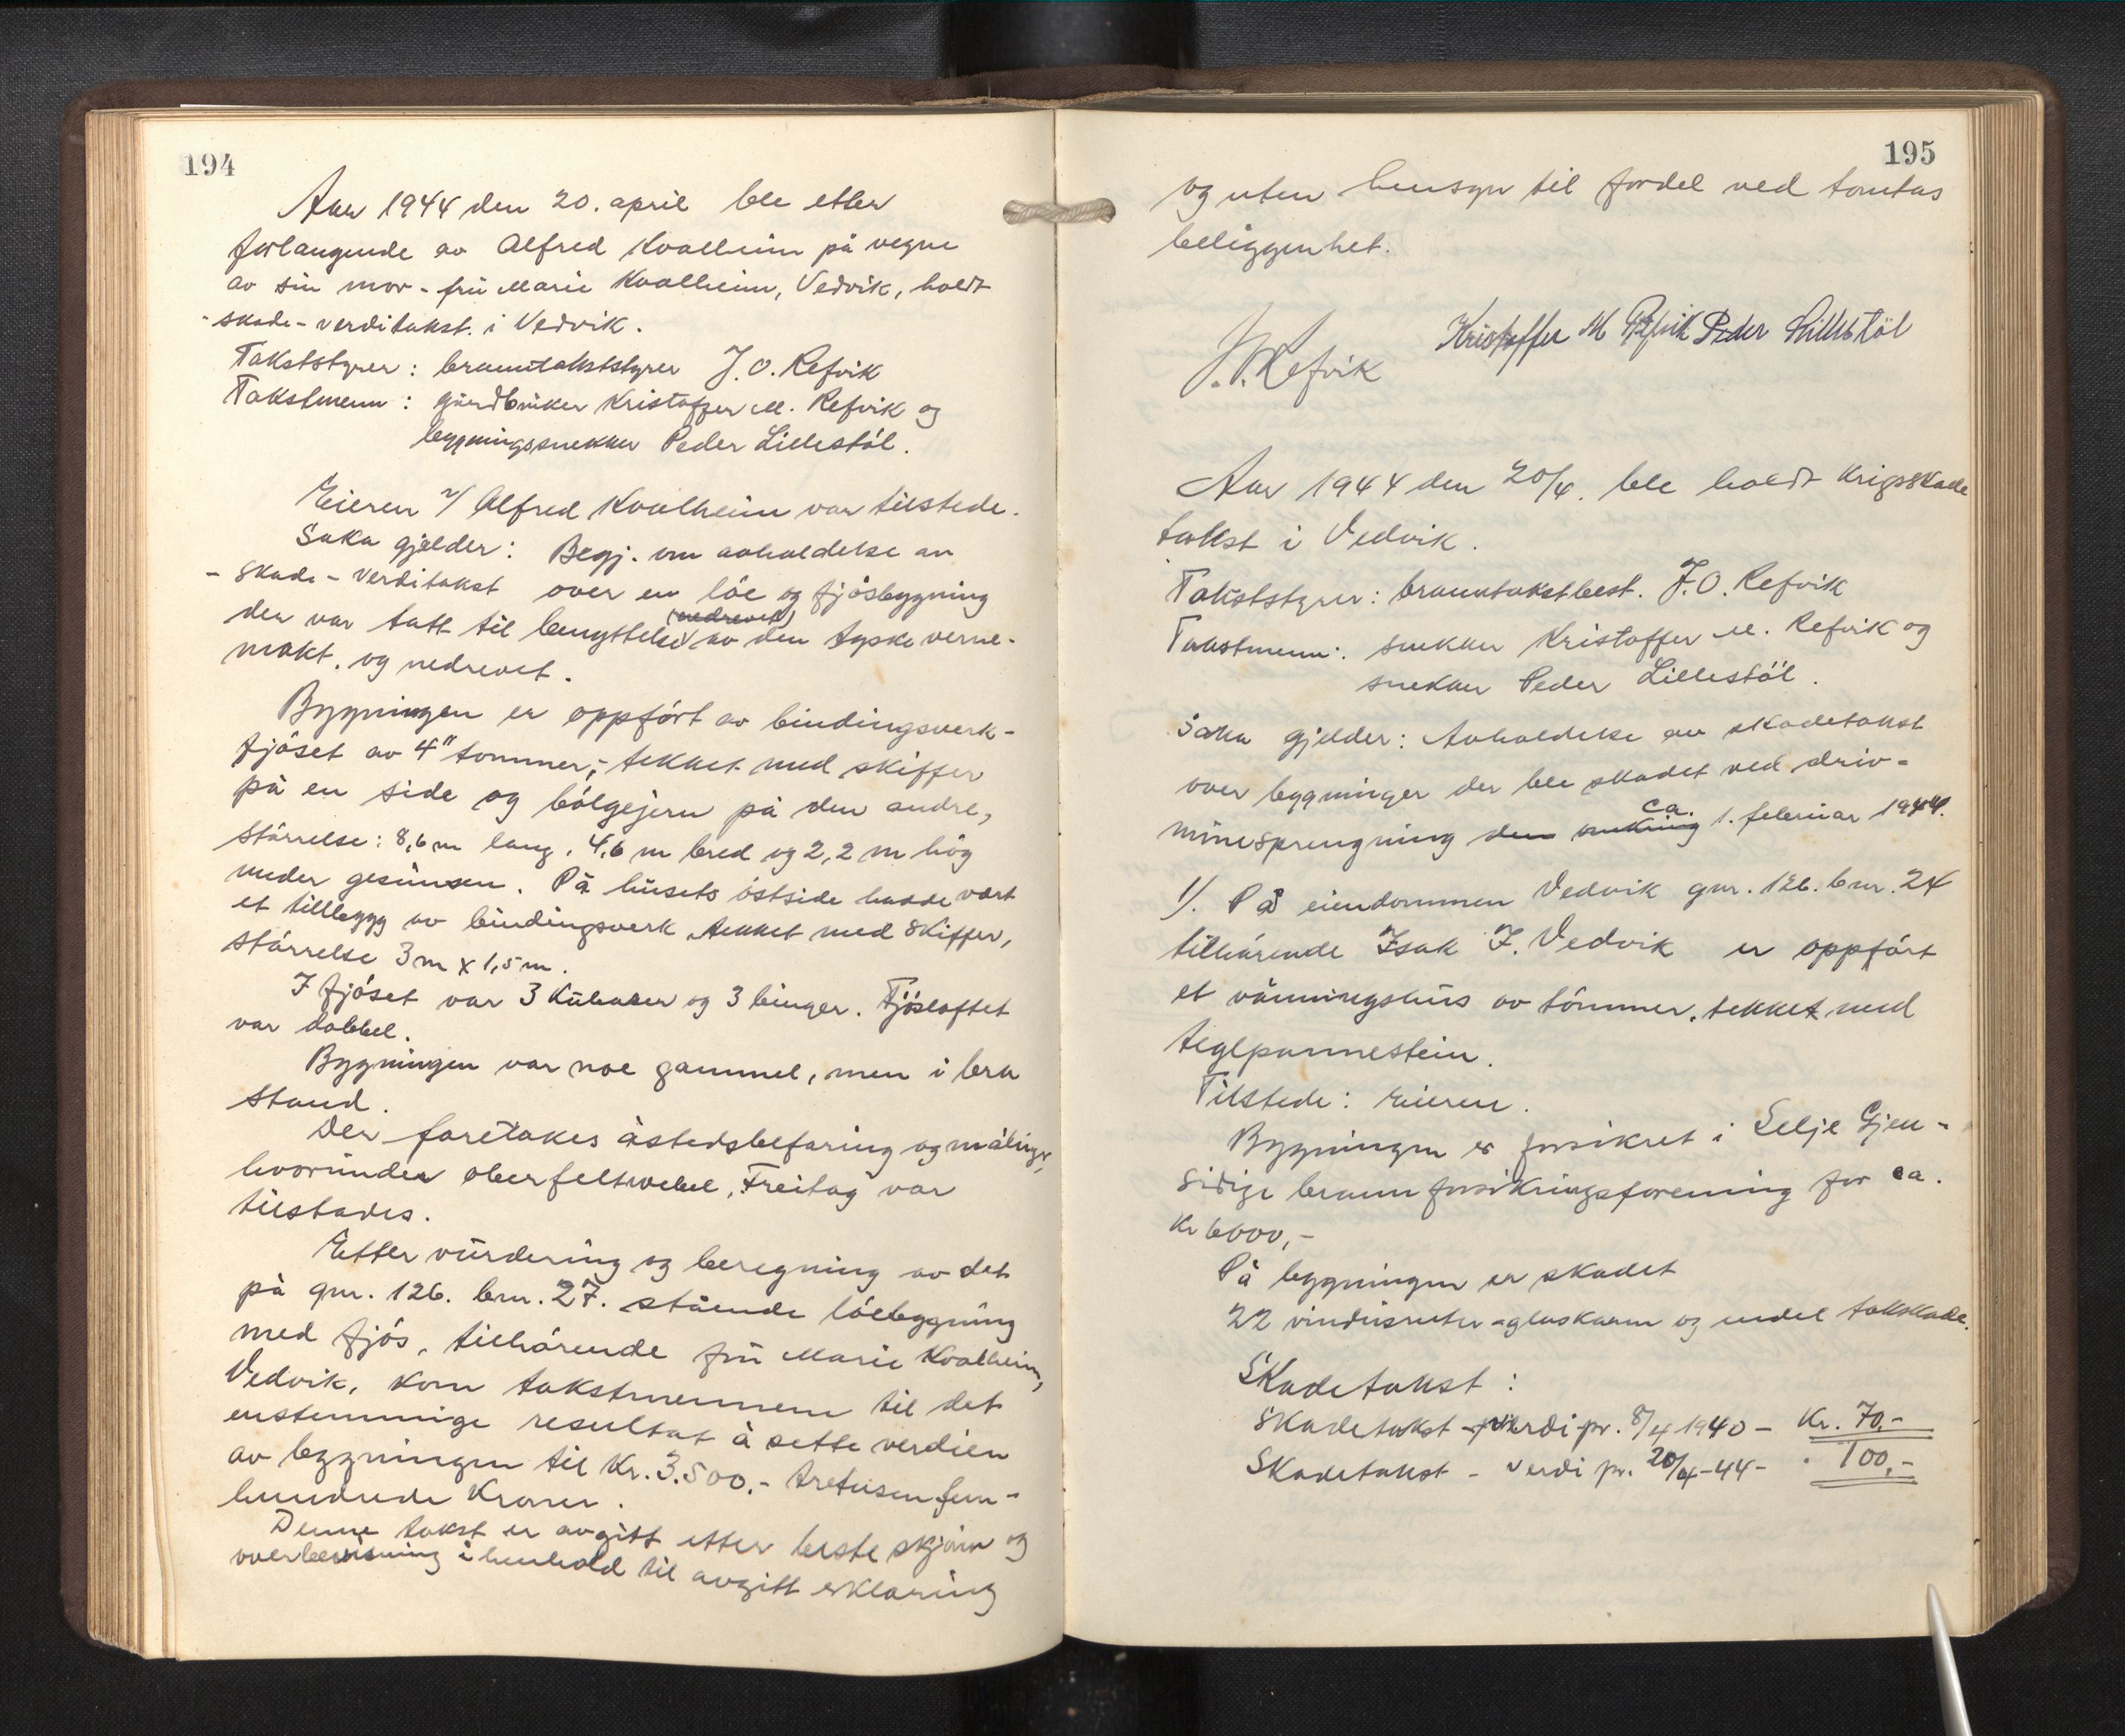 194
Aar 1944 den 20. april ble etter
forlangende av Alfred Kvalheim på vegne
av sin mor - frú Marie Kvalheim, Vedvik, holdt
- skade - verditakst. i Vedvik.
Takststyrer: branntakststyrer J. O. Refvik
Takstmenn: gårdbrúker Kristoffer M. Refvik og
bygningssnekker Peder Lillestöl.
Eieren v/ Alfred Kvalheim var tilstede.
Saka gjelder: Begj. om avholdelse av
- skade - verditakst over en löe og fjösbygning
der var tatt til benyttelse (nedrevet) av den tyske verne-
makt. og nedrevet.
Bygningen er oppfört av bindingsverk -
fjöset av 4" tommer, - tekket med skiffer
på en side og bölgejern på den andre,
störrelse: 8,6 m lang, 4,6 m bred og 2,2 m hög
under gesimsen. På húsets östside hadde vært
et tillbygg av bindingsverk tekket med skiffer,
störrelse 3 m x 1,5 m.
I fjöset var 3 kúbåser og 3 binger. Fjösloftet
var dobbel.
Bygningen var noe gammel, men i bra
stand.
Der foretakes åstedsbefaring og målinger,
hvorúnder oberfeltwebel, Freitag var
tilstades.
Etter vúrdering og beregning av det
på gnr. 126. bnr. 27. stående löebygning
med fjös, tilhörende frú Marie Kvalheim,
Vedvik, kom takstmennene til det
enstemmige resultat å sette verdien
av bygningen til Kr. 3.500.- tretúsen fem-
hundrede Kroner.
Denne takst er avgitt etter beste skjönn og
overbevisning i henhold til avgitt erklæring
195
og uten hensyn til fordel ved tomtas
beliggenhet.
J. O. Refvik Kristoffer M Refvik Peder Lillestöl
Aar 1944 den 20/4. ble holdt krigsskade
takst i Vedvik.
Takststyrer: branntakstbest. J. O. Refvik
Takstmenn: snekker Kristoffer M. Refvik og
snekker Peder Lillestöl.
Saka gjelder: Avholdelse av skadetakst
over bygninger der ble skadet ved driv-
minesprengning den omkring ca. 1. februar 1944.
1). På eiendommen Vedvik gnr. 126. bnr. 24
tilhörende Isak J. Vedvik er oppfört
et våningshús av tömmer, tekket med
teglpannestein.
Tilstede: eieren.
Bygningen er forsikret i Selje Gjen-
sidige brannforsikringsforening for ca.
Kr 6000,-
På bygningen er skadet
22 vindúsruter - glaskarm og endel takskade.
Skadetakst:
Skadetakst - verdi pr. 8/4 1940 - Kr. 70.-
Skadetakst - verdi pr. 20/4-44- " 100,-